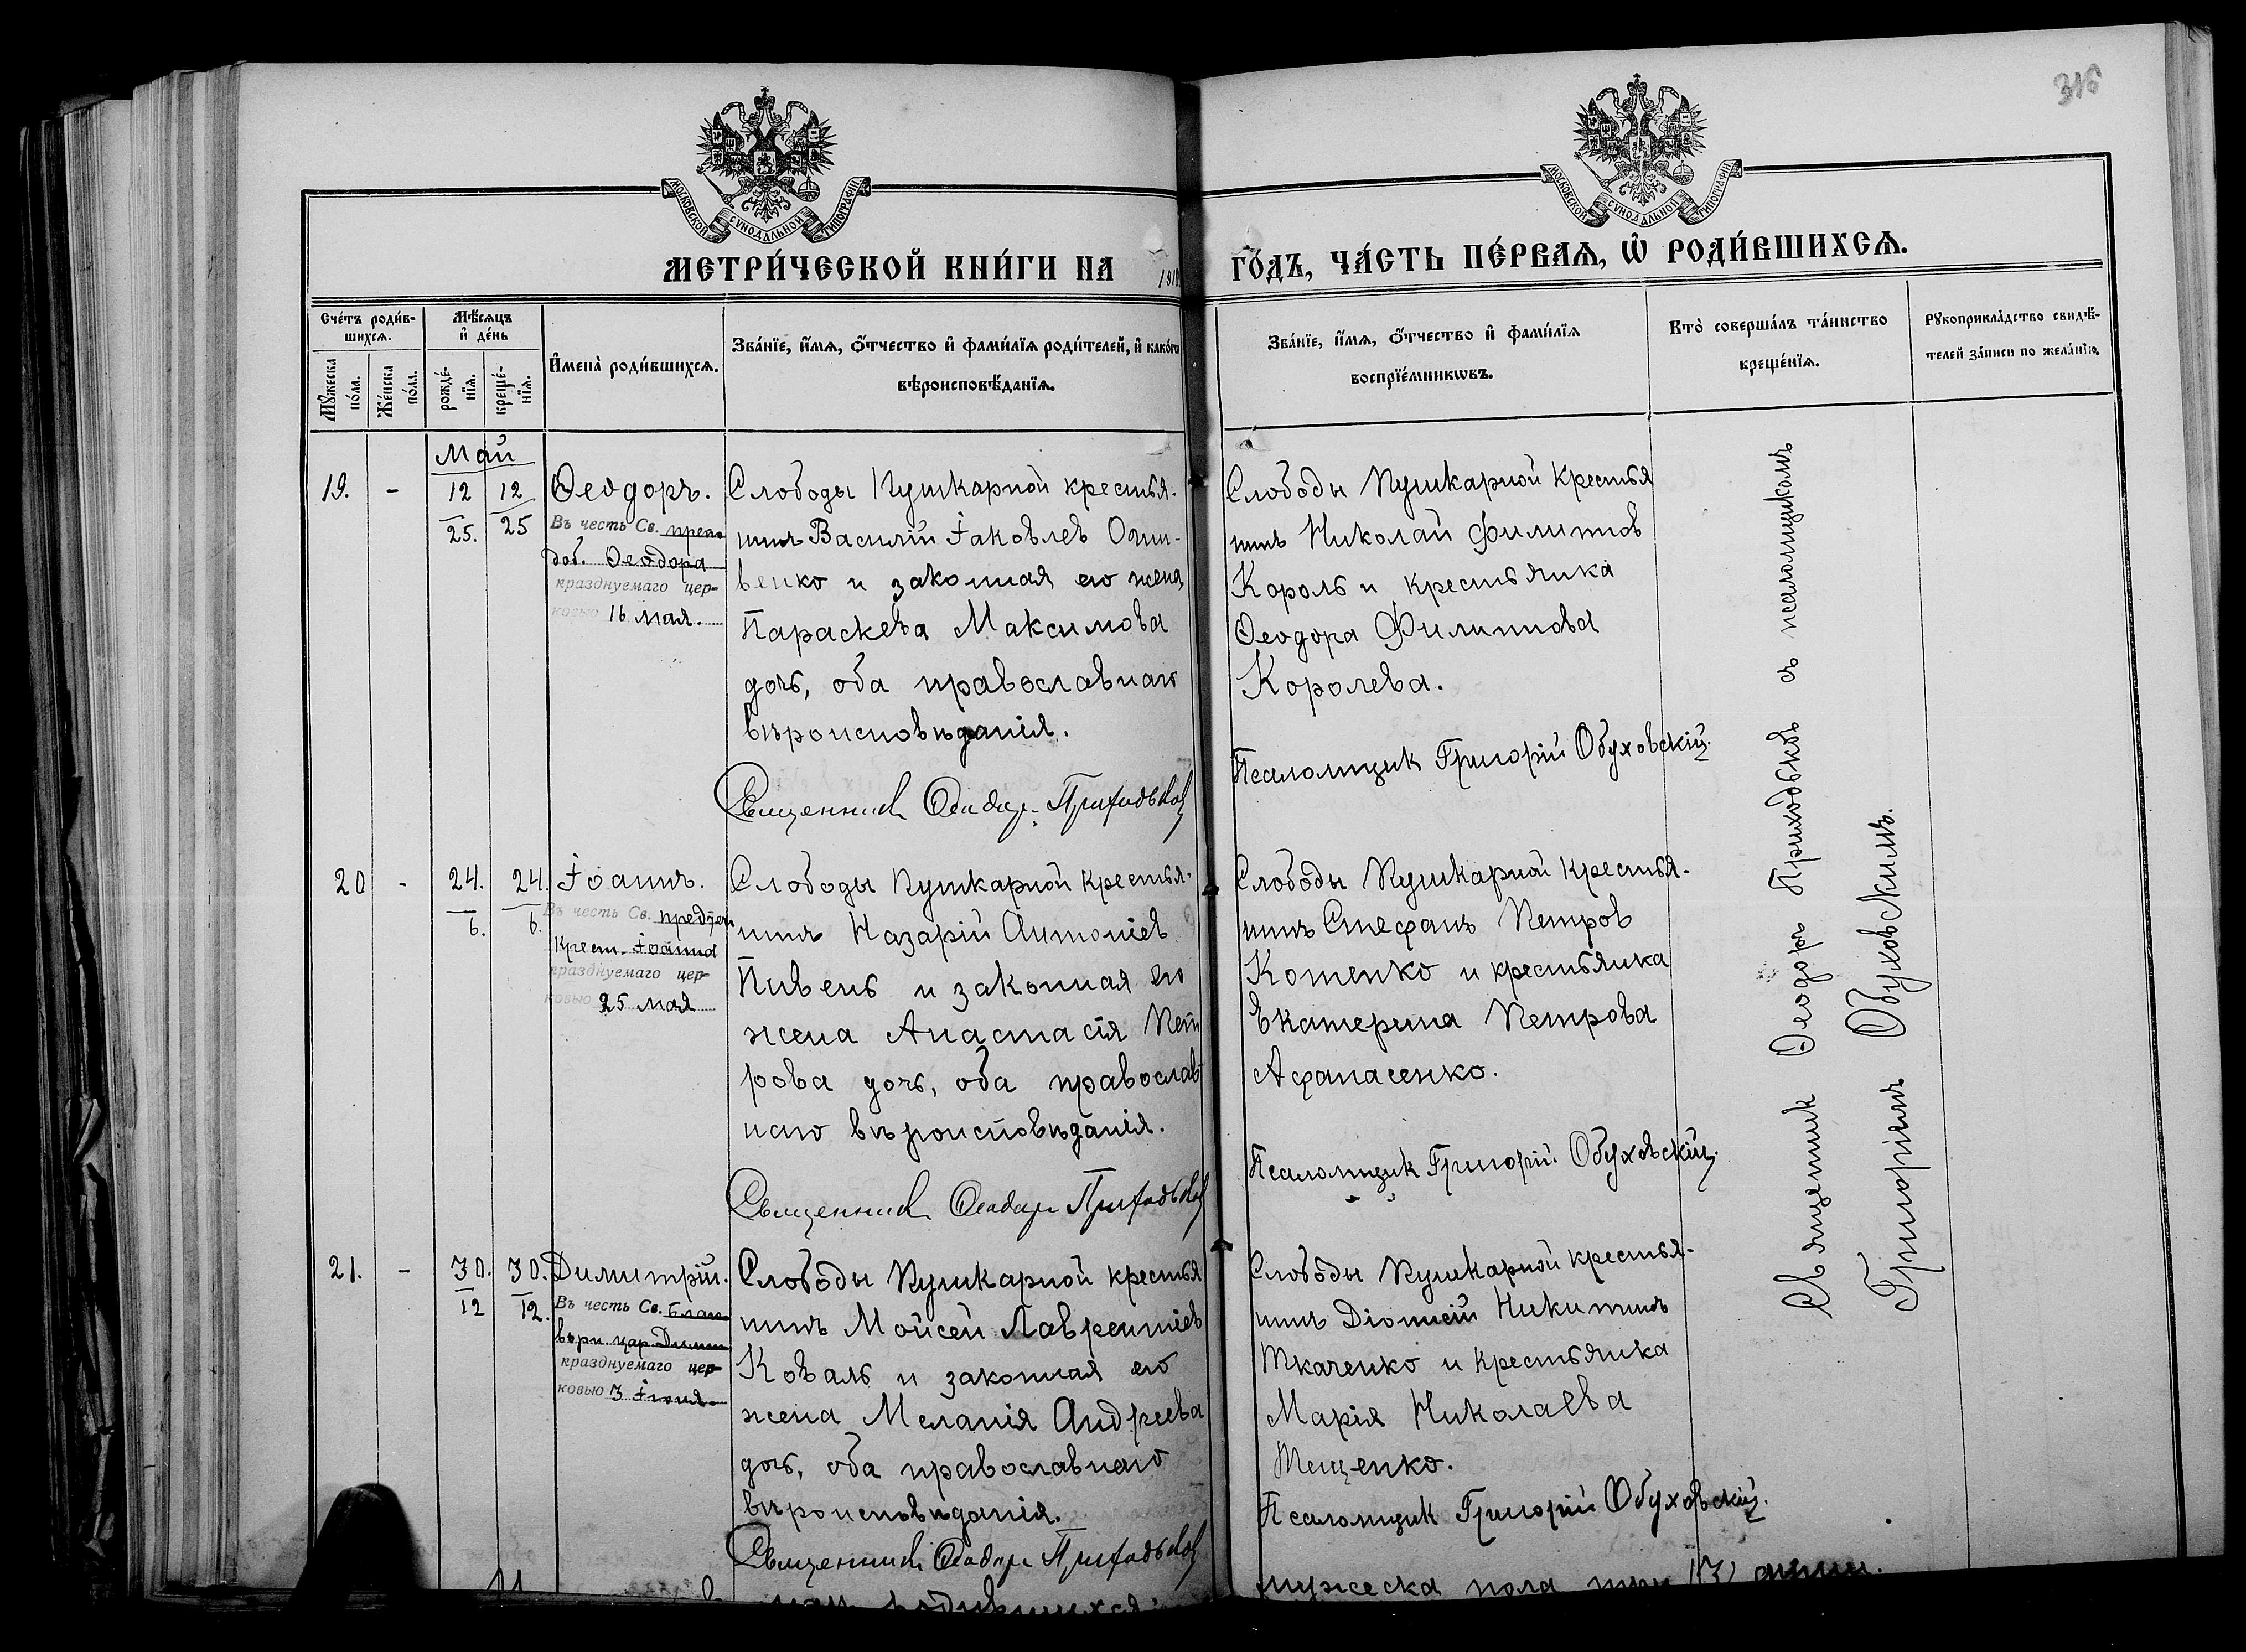 316
МОСКОВСКОЙ СѴНОДАЛЬНОЙ ТИПОГРАФІИ
МОСКОВСКОЙ СѴНОДАЛЬНОЙ ТИПОГРАФІИ
МЕТРИ́ЧЕСКОЙ КНИ́ГИ НА 1918
ГО́ДЪ, ЧА́СТЬ ПЕ́РВАѦ, Ѽ РОДИ́ВШИХСѦ.
Сче́тъ роди́в-
шихсѧ.
Мꙋ́жеска
по́ла.
Же́нска
по́ла.
Мѣ́сѧцъ
и҆ де́нь
рожде́-
нїѧ.
креще́-
нїѧ.
И҆мена̀ роди́вшихсѧ.
Зва́нїе, и҆́мѧ, ѻ҆́тчество и҆ фами́лїѧ роди́телей, и҆ како́гѡ
вѣроисповѣ́данїѧ.
Зва́нїе, и҆́мѧ, ѻ҆́тчество и҆ фами́лїѧ
воспрїе́мникѡвъ.
Кто̀ соверша́лъ та́инство
креще́нїѧ.
Рꙋкоприкла́дство свидѣ́-
телей за́писи по жела́нїю.
Май
19.
-
12
25.
12
25
Ѳеодоръ.
Въ честь Св. препо
доб. Ѳеодора
празднуемаго цер-
ковью 16 мая.
Слободы Пушкарной крестья-
нинъ Василій Іаковлев
венко и законная его жена
Параскева Максимова
дочь, оба православнаго
вѣроисповѣданія.
Священникъ Ѳеодоръ Приходьковъ
Слободы Пушкарной крестья
нинъ Николай Филиппов
Король и крестьянка
Ѳеодора Филиппова
Королева.
Псаломщик Григорій Обуховскій.
20
-
24.
6.
24.
6.
Іоаннъ.
Въ честь Св. предтеч
Крест. Іоанна
празднуемаго цер-
ковью 25 мая
Слободы Пушкарной крестья-
нинъ Назарій Антоніев
Пивень и законная его
жена Анастасія Пет
рова дочь, оба православ-
наго вѣроисповѣданія.
Священникъ Ѳеодоръ Приходьковъ
Слободы Пушкарной крестья-
нинъ Стефанъ Петров
Котенко и крестьянка
Екатерина Петрова
Афанасенко.
Псаломщик Григорій Обуховскій.
21.
-
30.
12
30.
12.
Димитрій.
Въ честь Св. благо
вѣрн. цар. Димит
празднуемаго цер-
ковью 3 Іюня
Слободы Пушкарной крестья
нинъ Мойсей Лаврентіев
Коваль и законная его
жена Меланія Андреева
дочь, оба православнаго
вѣроисповѣданія.
Священникъ Ѳеодоръ Приходьковъ
Слободы Пушкарной крестья-
нинъ Діонисій Никитинъ
Ткаченко и крестьянка
Марія Николаева
Тещенко.
Псаломщик Григорій Обуховскій.
Священник Ѳеодоръ Приходьковъ съ псаломщикомъ
Григоріемъ Обуховскимъ.
родившихся:
мужеска пола три (3)